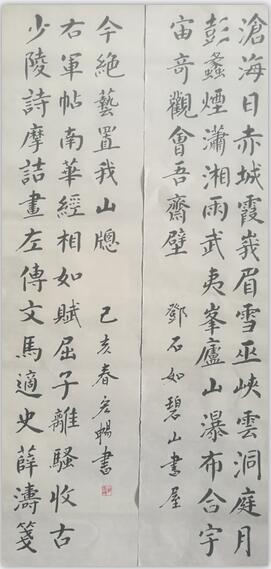 滄海日赤城霞峩眉雪巫峽雲洞庭月
彭蠡煙瀟湘雨武夷峯廬山瀑布合宇
宙竒觀會吾齋壁
鄧石如碧山書屋
少陵詩摩詰畫左傳文馬適史薛濤箋
右軍帖南華經相如賦屈子離騷收古
今絕藝置我山牕
己亥春暢書